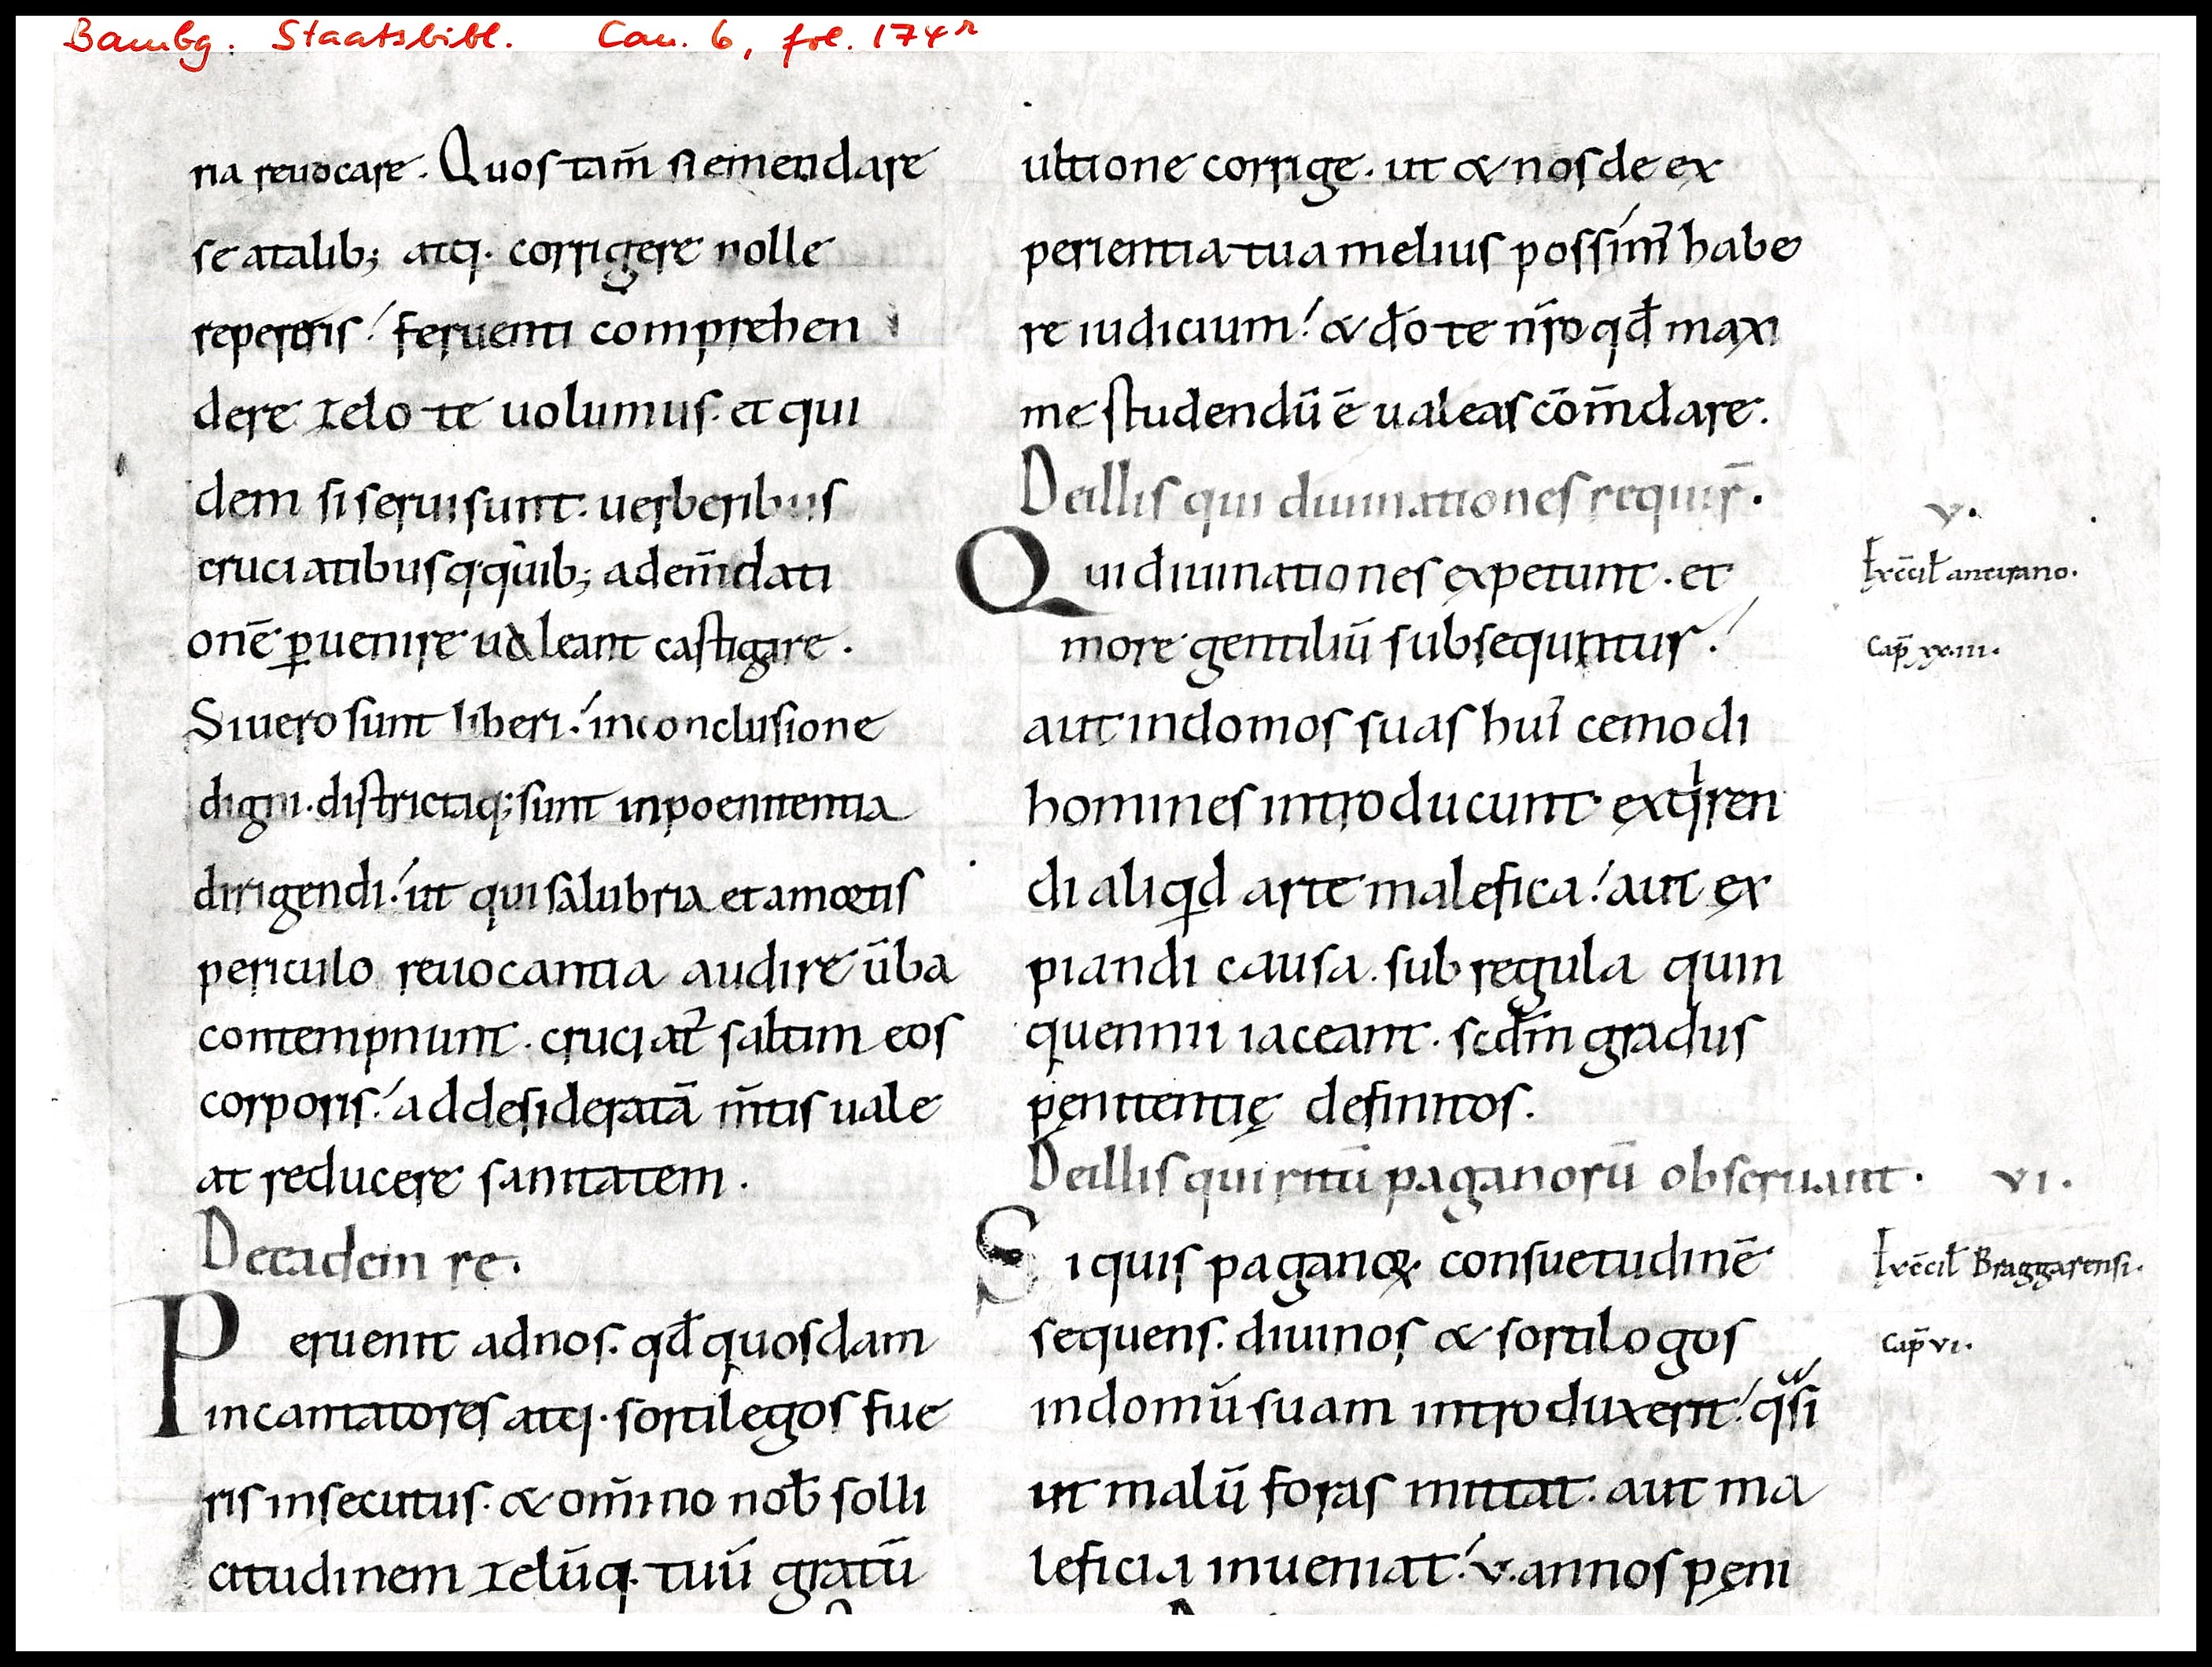 Bambg. Staatsbibl. Can. 6, fol. 174r
ria reuocare. Quos tam̄ si emendare
se a talib; atq. corrigere nolle
repereris! feruenti comprehen
dere zelo te uolumus. et qui
dem si serui sunt. uerberibus
cruciatibusq. quib; ad em̄dati
onē ꝑuenire ualeant castigare.
Si uero sunt liberi! in conclusione
digni. districtaq; sunt in poenitentia
dirigendi! ut qui salubria et a mortis
periculo reuocantia audire ūba
contempnunt. cruciat᷒ saltim eos
corporis! ad desideratā m̄tis uale
at reducere sanitatem.
De eadem re.
Peruenit ad nos. qđ quosdam
incantatores atq. sortilegos fue
ris insecutus. & om̄ino nob̄ solli
citudinem zelūq. tuū gratū
ultione corrige. ut & nos de ex
perientia tua melius possim᷒ habe
re iudicium! & dō te nr̄o qđ maxi
me studendū ē ualeas cōm̄dare.
De illis qui diuinationes requir̄.
Qui diuinationes expetunt. et
more gentiliū subsequntur!
aut in domos suas hui᷒cemodi
homines introducunt exqⁱren
di aliqd arte malefica! aut ex
piandi causa. sub regula quin
quennii iaceant. scđm gradus
pęnitentię definitos.
De illis qui ritū paganorū obseruant.
Si quis paganoꝝ consuetudinē
sequens. diuinos & sortilogos
in domū suam introduxerit! qᵃsi
ut malū foras mittat. aut ma
leficia inueniat! v. annos pęni
v.
Ex cc̄il ancirano.
Cap̄ xx.iii.
vi.
Ex cc̄il Braggarensi.
Cap̄ vi.